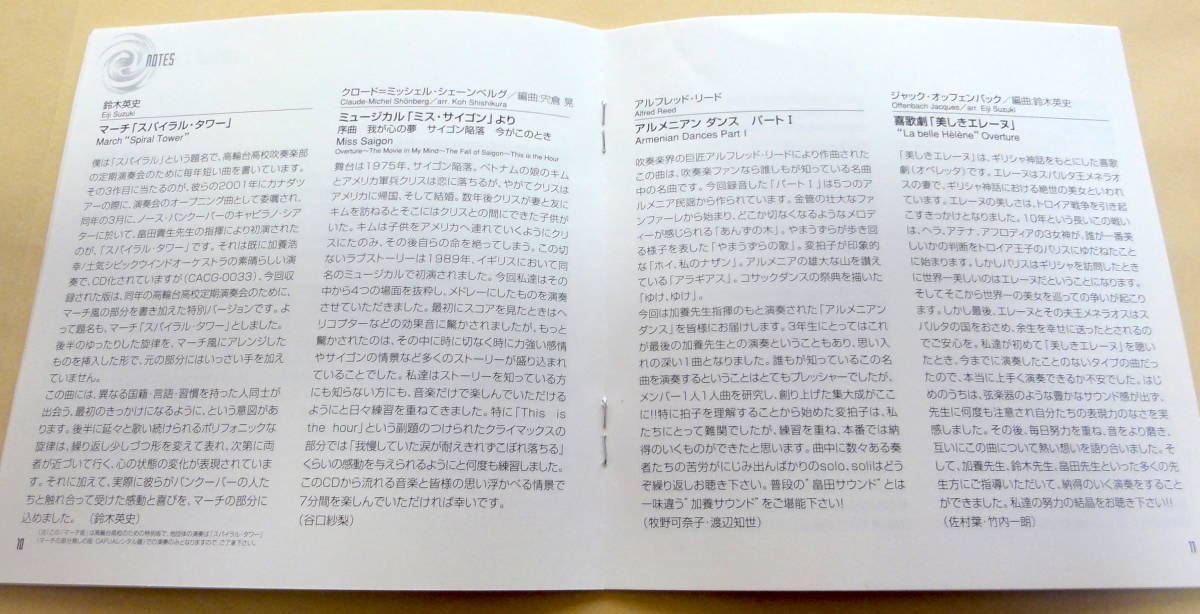 NOTES
鈴木英史
Eiji Suzuki
マーチ「スパイラル・タワー」
March “Spiral Tower”
僕は「スパイラル」という題名で、高輪台高校吹奏楽部
の定期演奏会のために毎年短い曲を書いています。
その3作目に当たるのが、彼らの2001年にカナダツ
アーの際に、演奏会のオープニング曲として委嘱され、
同年の3月に、ノース・バンクーバーのキャピラノ・シア
ターに於いて、畠田貴生先生の指揮により初演された
のが、「スパイラル・タワー」です。それは既に加養浩
幸/土気シビックウインドオーケストラの素晴らしい演
奏で、CD化されていますが(CACG-0033)、今回収
録された版は、同年の高輪台高校定期演奏会のために、
マーチ風の部分を書き加えた特別バージョンです。よ
って題名も、マーチ「スパイラル・タワー」としました。
後半のゆったりした旋律を、マーチ風にアレンジした
ものを挿入した形で、元の部分にはいっさい手を加え
ていません。
この曲には、異なる国籍・言語・習慣を持った人同士が
出会う、最初のきっかけになるように、という意図があ
ります。後半に延々と歌い続けられるポリフォニックな
旋律は、繰り返し少しづつ形を変えて表れ、次第に両
者が近づいて行く、心の状態の変化が表現されていま
す。それに加えて、実際に彼らがバンクーバーの人た
ちと触れ合って受けた感動と喜びを、マーチの部分に
込めました。 (鈴木英史)
(注)この「マーチ風」は高輪台高校のための特別版で、他団体の演奏は「スパイラル・タワー」
(マーチの部分無しの版 CAFUAレンタル譜)での演奏のみとなりますので、ご了承下さい。
10
クロード=ミッシェル・シェーンベルグ/編曲:宍倉 晃
Claude-Michel Shönberg/arr. Koh Shishikura
ミュージカル「ミス・サイゴン」より
序曲 我が心の夢 サイゴン陥落 今がこのとき
Miss Saigon
Overture〜The Movie in My Mind〜The Fall of Saigon〜This is the Hour
舞台は1975年、サイゴン陥落。ベトナムの娘のキム
とアメリカ軍兵クリスは恋に落ちるが、やがてクリスは
アメリカに帰国、そして結婚。数年後クリスが妻と友に
キムを訪ねるとそこにはクリスとの間にできた子供が
いた。キムは子供をアメリカへ連れていくようにクリ
スにたのみ、その後自らの命を絶ってしまう。この切
ないラブストーリーは1989年、イギリスにおいて同
名のミュージカルで初演されました。今回私達はその
中から4つの場面を抜粋し、メドレーにしたものを演奏
させていただきました。最初にスコアを見たときはヘ
リコプターなどの効果音に驚かされましたが、もっと
驚かされたのは、その中に時に切なく時に力強い感情
やサイゴンの情景など多くのストーリーが盛り込まれ
ていることでした。私達はストーリーを知っている方
にも知らない方にも、音楽だけで楽しんでいただける
ようにと日々練習を重ねてきました。特に「This is
the hour」という副題のつけられたクライマックスの
部分では「我慢していた涙が耐えきれずこぼれ落ちる」
くらいの感動を与えられるようにと何度も練習しました。
このCDから流れる音楽と皆様の思い浮かべる情景で
7分間を楽しんでいただければ幸いです。
(谷口紗梨)
アルフレッド・リード
Alfred Reed
アルメニアン ダンス パートⅠ
Armenian Dances Part I
吹奏楽界の巨匠アルフレッド・リードにより作曲された
この曲は、吹奏楽ファンなら誰しもが知っている名曲
中の名曲です。今回録音した「パートⅠ」は5つのア
ルメニア民謡から作られています。金管の壮大なファ
ンファーレから始まり、どこか切なくなるようなメロデ
ィーが感じられる「あんずの木」。やまうずらが歩き回
る様子を表した「やまうずらの歌」。変拍子が印象的
な「ホイ、私のナザン」。アルメニアの雄大な山を讃え
ている「アラギアス」。コサックダンスの祭典を描いた
「ゆけ、ゆけ」。
今回は加養先生指揮のもと演奏された「アルメニアン
ダンス」を皆様にお届けします。3年生にとってはこれ
が最後の加養先生との演奏ということもあり、思い入
れの深い1曲となりました。誰もが知っているこの名
曲を演奏するということはとてもプレッシャーでしたが、
メンバー1人1人曲を研究し、創り上げた集大成がここ
に!!特に拍子を理解することから始めた変拍子は、私
たちにとって難関でしたが、練習を重ね、本番では納
得のいくものができたと思います。曲中に数々ある奏
者たちの苦労がにじみ出んばかりのsolo、soliはどう
ぞ繰り返しお聴き下さい。普段の“畠田サウンド”とは
一味違う“加養サウンド”をご堪能下さい!
(牧野可奈子・渡辺知世)
ジャック・オッフェンバック/編曲:鈴木英史
Offenbach Jacques/arr. Eiji Suzuki
喜歌劇「美しきエレーヌ」
“La belle Hélène” Overture
「美しきエレーヌ」は、ギリシャ神話をもとにした喜歌
劇(オペレッタ)です。エレーヌはスパルタ王メネラオ
スの妻で、ギリシャ神話における絶世の美女といわれ
ています。エレーヌの美しさは、トロイア戦争を引き起
こすきっかけとなりました。10年という長いこの戦い
は、ヘラ、アテナ、アフロディアの3女神が、誰が一番美
しいかの判断をトロイア王子のパリスにゆだねたこと
に始まります。しかしパリスはギリシャを訪問したとき
に世界一美しいのはエレーヌだということになります。
そしてそこから世界一の美女を巡っての争いが起こり
ます。しかし最後、エレーヌとその夫王メネラオスはス
パルタの国をおさめ、余生を幸せに送ったとされるの
でご安心を。私達が初めて「美しきエレーヌ」を聴い
たとき、今までに演奏したことのないタイプの曲だっ
たので、本当に上手く演奏できるか不安でした。はじ
めのうちは、弦楽器のような豊かなサウンド感が出ず、
先生に何度も注意され自分たちの表現力のなさを実
感しました。その後、毎日努力を重ね、音をより磨き、
互いにこの曲について熱い想いを語り合いました。そ
して、加養先生、鈴木先生、畠田先生といった多くの先
生方にご指導いただいて、納得のいく演奏をすること
ができました。私達の努力の結晶をお聴き下さい!!
(佐村葉・竹内一朗)
11